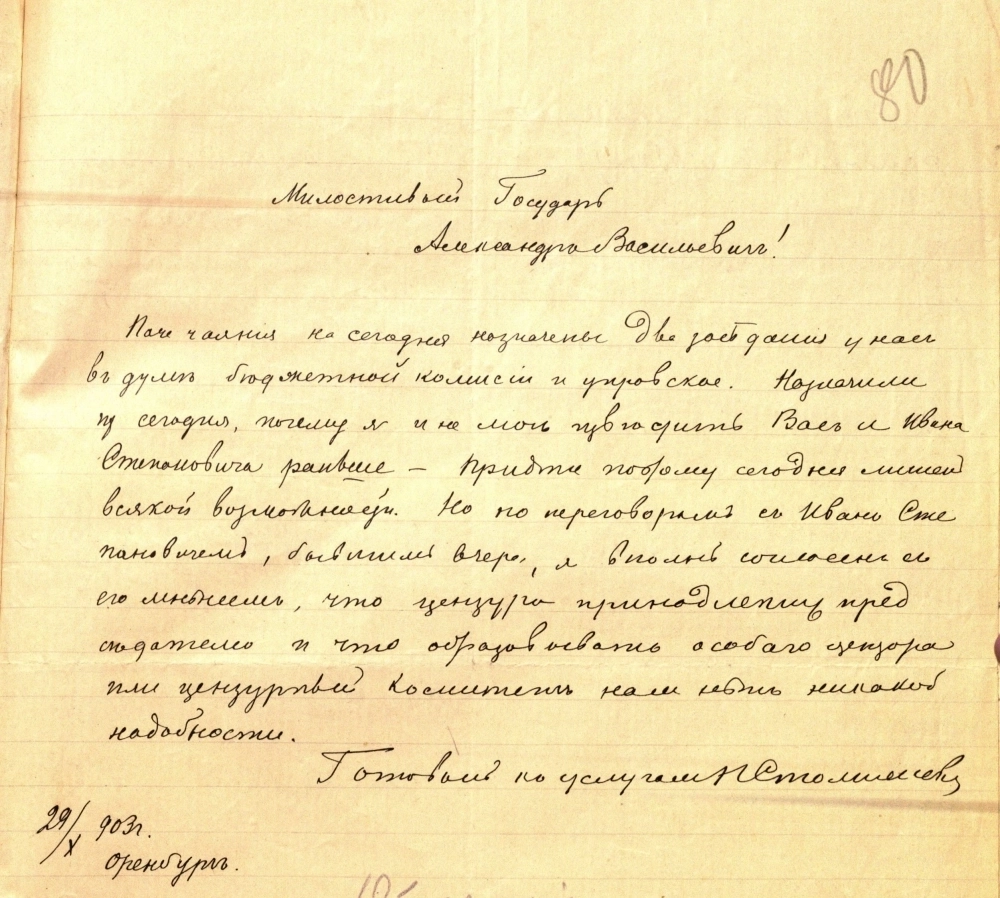 80
Милостивый Государь
Александръ Васильевичъ!
Паче чаянія на сегодня назначены два засѣданія у насъ
въ думѣ бюджетной комисіи и управское. Назначили
ихъ сегодня, почему я и не могъ Васъ и Ивана
Степановича раньше — придти поэтому сегодня лишенъ
всякой возможности. Но по переговорамъ съ Иваномъ Сте
пановичемъ, бывшимъ вчера, я вполнѣ согласенъ съ
его мнѣніемъ, что цензура принадлежитъ пред
сѣдателю и что образовывать особаго цензора
или цензурный комитетъ намъ нѣтъ никакой
надобности.
Готовый къ услугамъ
29/X 903г.
Оренбургъ.